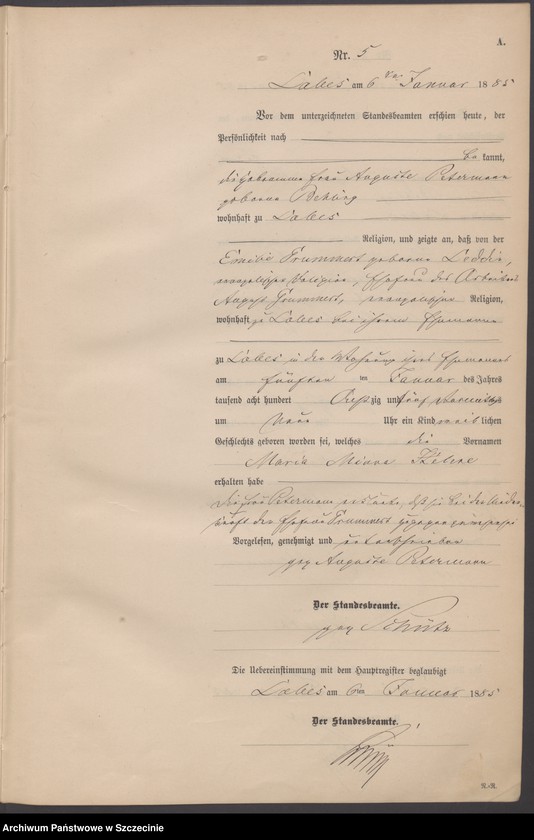 A.
Nr. 5
Labes am 6ten Januar 1885
Vor dem unterzeichneten Standesbeamten erschien heute, der
Persönlichkeit nach
be kannt,
die Hebamme Frau Auguste Petermann
geborne Behling
wohnhaft zu Labes
Religion, und zeigte an, daß von der
Emilie Frummert geborne Loddin,
evangelischer Religion, Ehefrau des Arbeiters
August Frummert, evangelischer Religion,
wohnhaft zu Labes bei ihrem Ehemanne
zu Labes in der Wohnung ihres Ehemannes
am fünften ten Januar des Jahres
tausend acht hundert achtzig und fünf Vormittags
um neun Uhr ein Kind weiblichen
Geschlechts geboren worden sei, welches die Vornamen
Maria Minna Helene
erhalten habe
Die Frau Petermann erklärte, daß sie bei der Nieder-
kunft der Ehefrau Frummert zugegen gewesen sei
Vorgelesen, genehmigt und unterschrieben
gez Auguste Petermann
Der Standesbeamte.
gez Schütz
Die Uebereinstimmung mit dem Hauptregister beglaubigt
Labes am 6ten Januar 1885
Der Standesbeamte.
Schütz
R.-R.
Archiwum Państwowe w Szczecinie